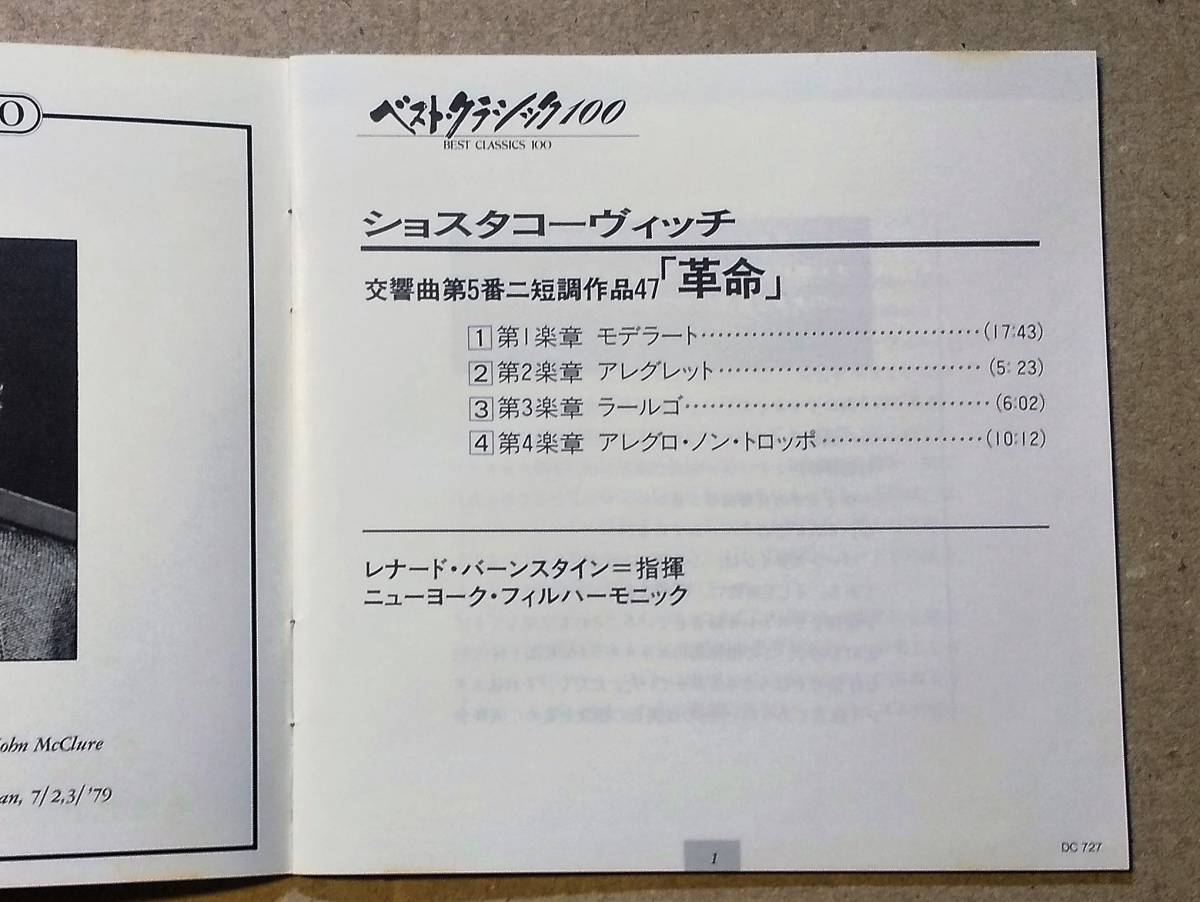 O
John McClure
an, 7/2,3/'79
ベスト・クラシック100
BEST CLASSICS 100
ショスタコーヴィッチ
交響曲第5番ニ短調作品47「革命」
1 第1楽章 モデラート……………………………(17:43)
2 第2楽章 アレグレット…………………………(5:23)
3 第3楽章 ラールゴ………………………………(6:02)
4 第4楽章 アレグロ・ノン・トロッポ………………(10:12)
レナード・バーンスタイン=指揮
ニューヨーク・フィルハーモニック
1
DC 727